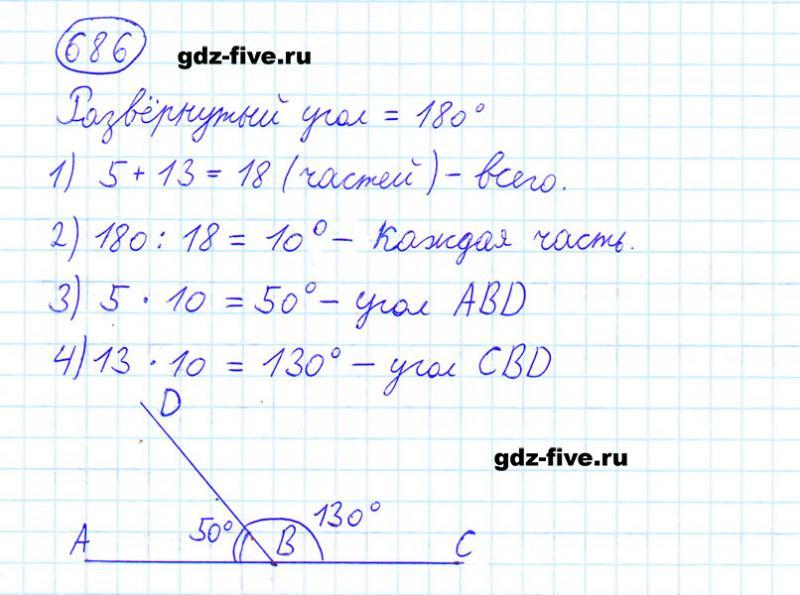 686 gdz-five.ru
Развёрнутый угол = 180°
1) 5 + 13 = 18 (частей) - всего.
2) 180 : 18 = 10° - каждая часть.
3) 5 · 10 = 50° - угол ABD
4) 13 · 10 = 130° - угол CBD
D
gdz-five.ru
50° 130°
A B C